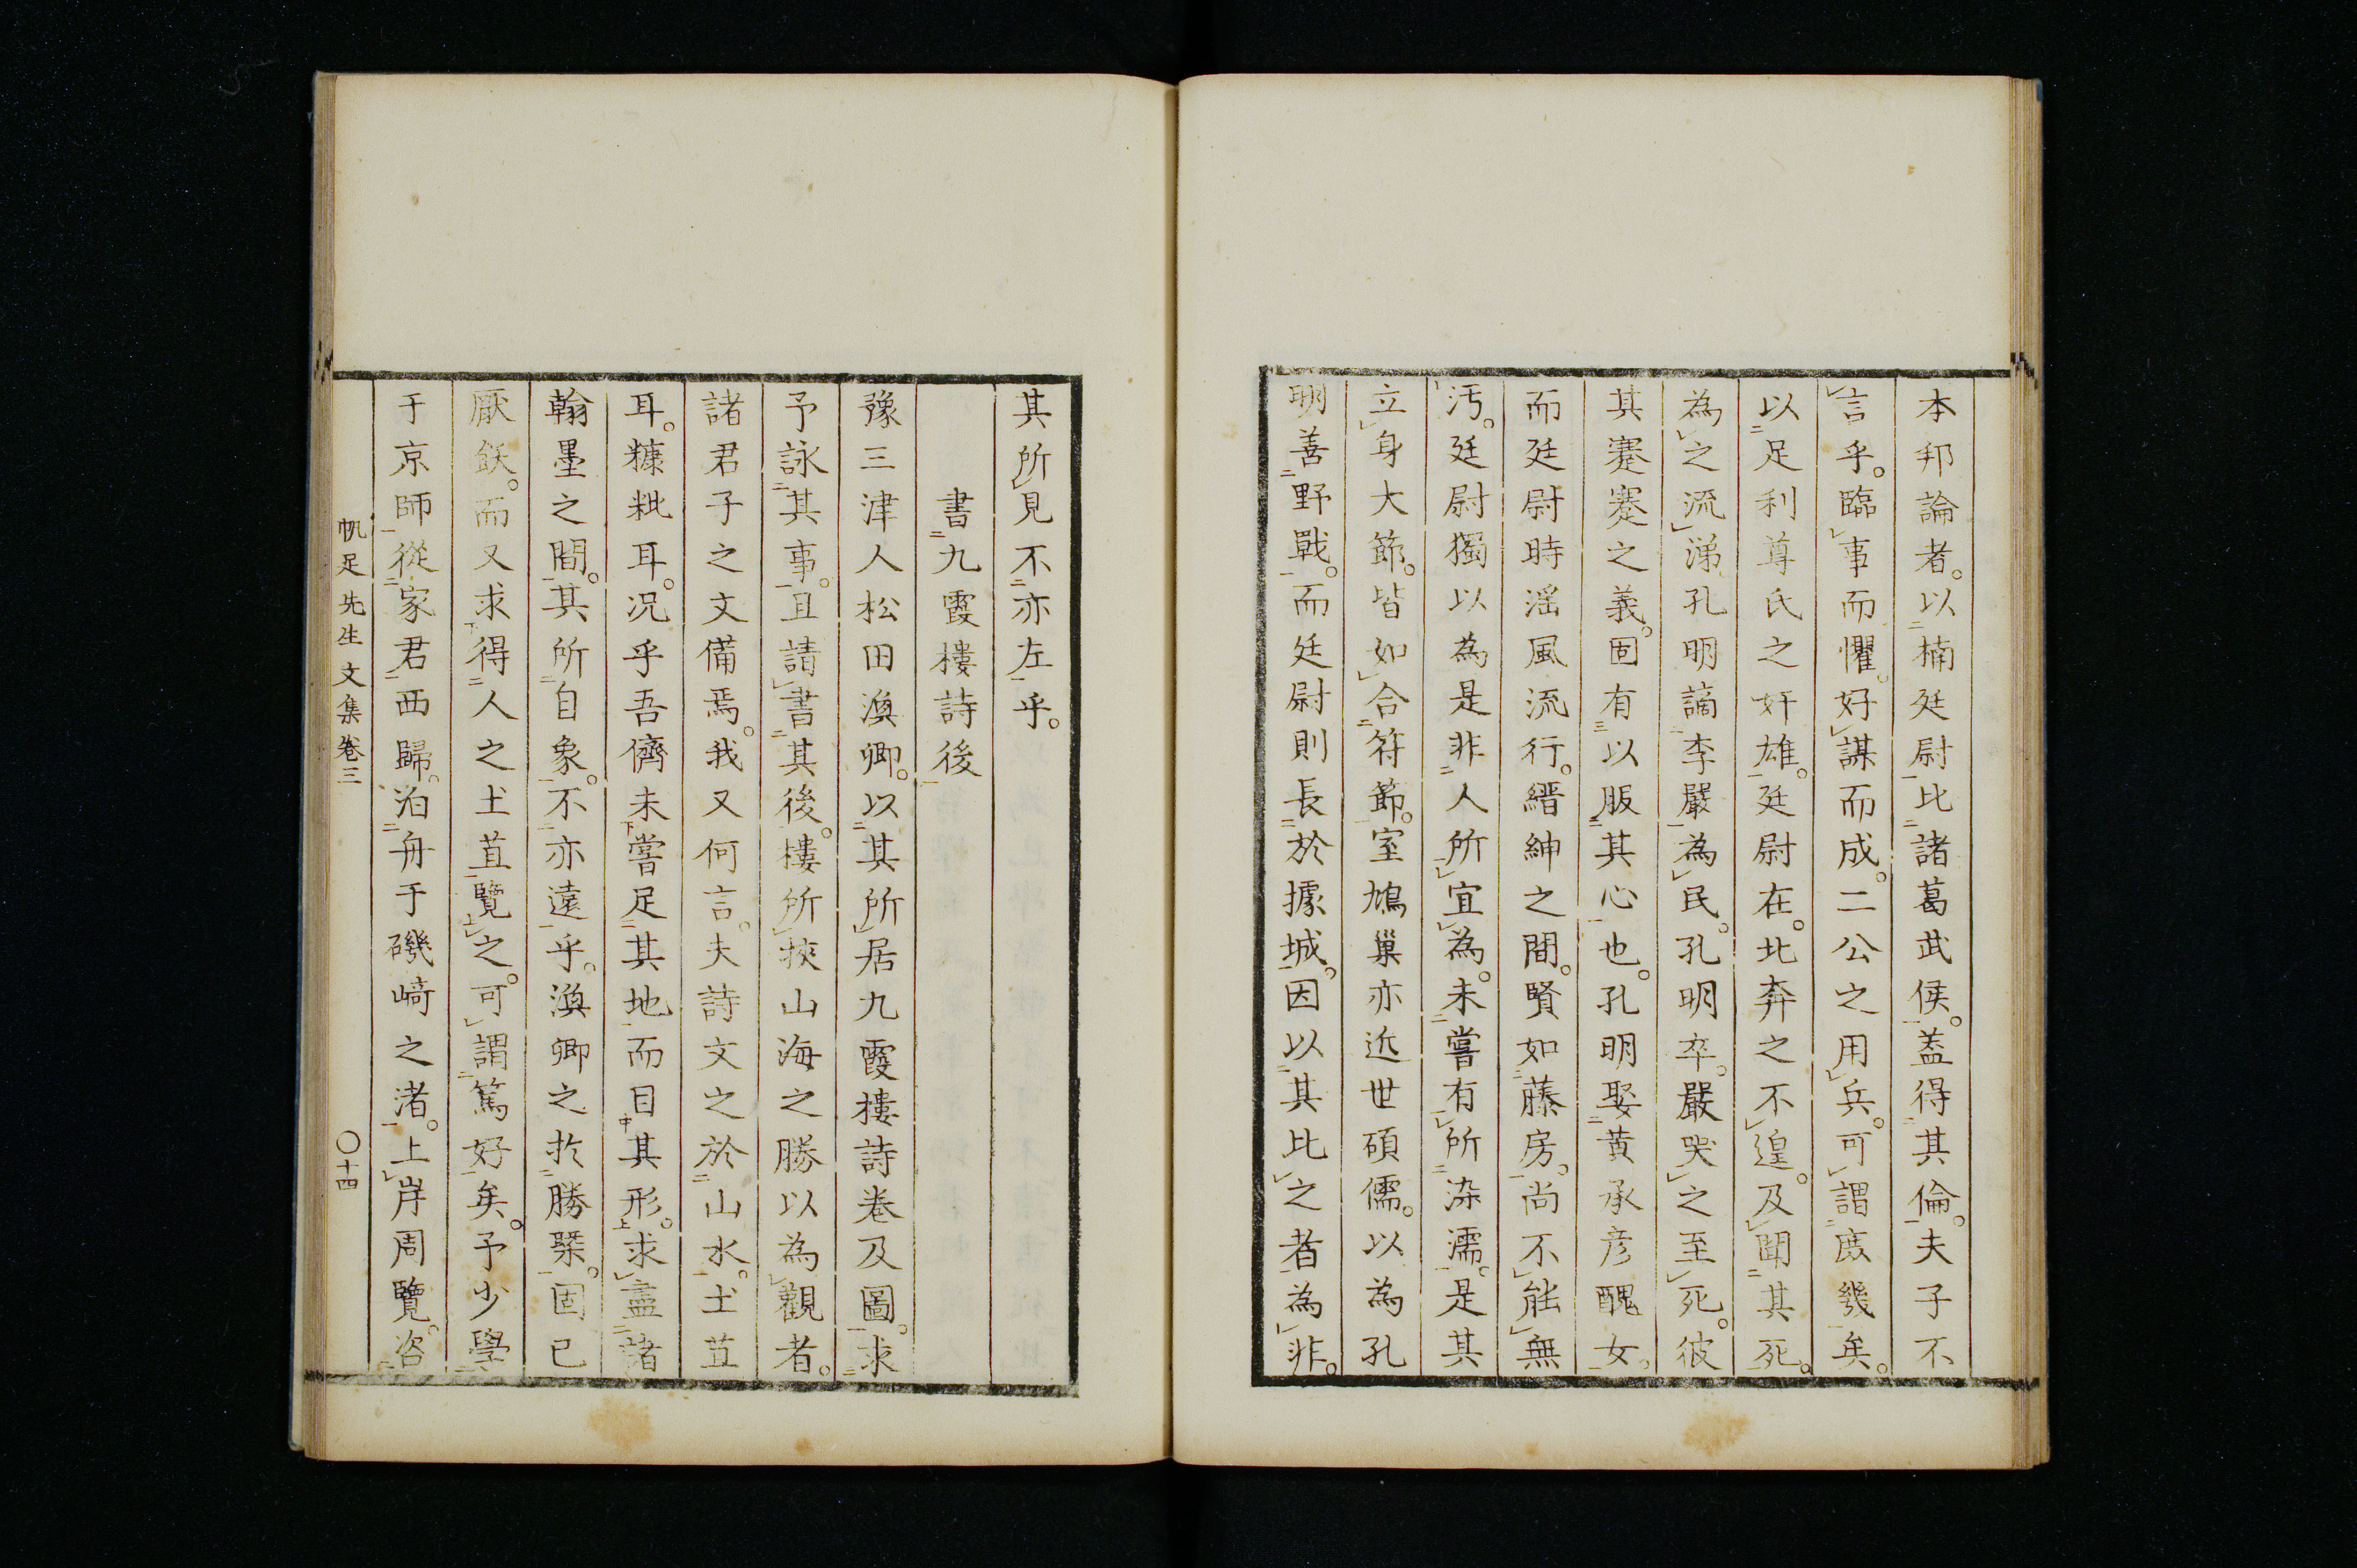 本邦論者。以楠廷尉比諸葛武侯。葢得其倫。夫子不
言乎。臨事而懼。好謀而成。二公之用兵。可謂庶幾矣。
以足利尊氏之奸雄。廷尉在。北奔之不遑。及聞其死。
為之流涕。孔明謫李嚴為民。孔明卒。嚴哭之至死。彼
其蹇蹇之義。固有以服其心也。孔明娶黄承彦醜女。
而廷尉時滛風流行。縉紳之間。賢如藤房。尚不能無
汚。廷尉獨以為是非人所宜為。未嘗有所染濡。是其
立身大節。皆如合符節。室鳩巢亦近世碩儒。以為孔
明善野戰。而廷尉則長於據城。因以其比之者為非。
其所見不亦左乎。
書九霞樓詩後
豫三津人松田渙卿。以其所居九霞樓詩巻及圖。求
予詠其事。且請書其後。樓所挾山海之勝以為觀者。
諸君子之文備焉。我又何言。夫詩文之於山水。土苴
耳。糠粃耳。况乎吾儕未嘗足其地而目其形。求盡諸
翰墨之間。其所自象。不亦遠乎。渙卿之於勝槩。固已
厭飫。而又求得人之土苴覽之。可謂篤好矣。予少學
于京師。從家君西歸。泊舟于磯﨑之渚。上岸周覽。咨
帆足先生文集巻三
〇十四